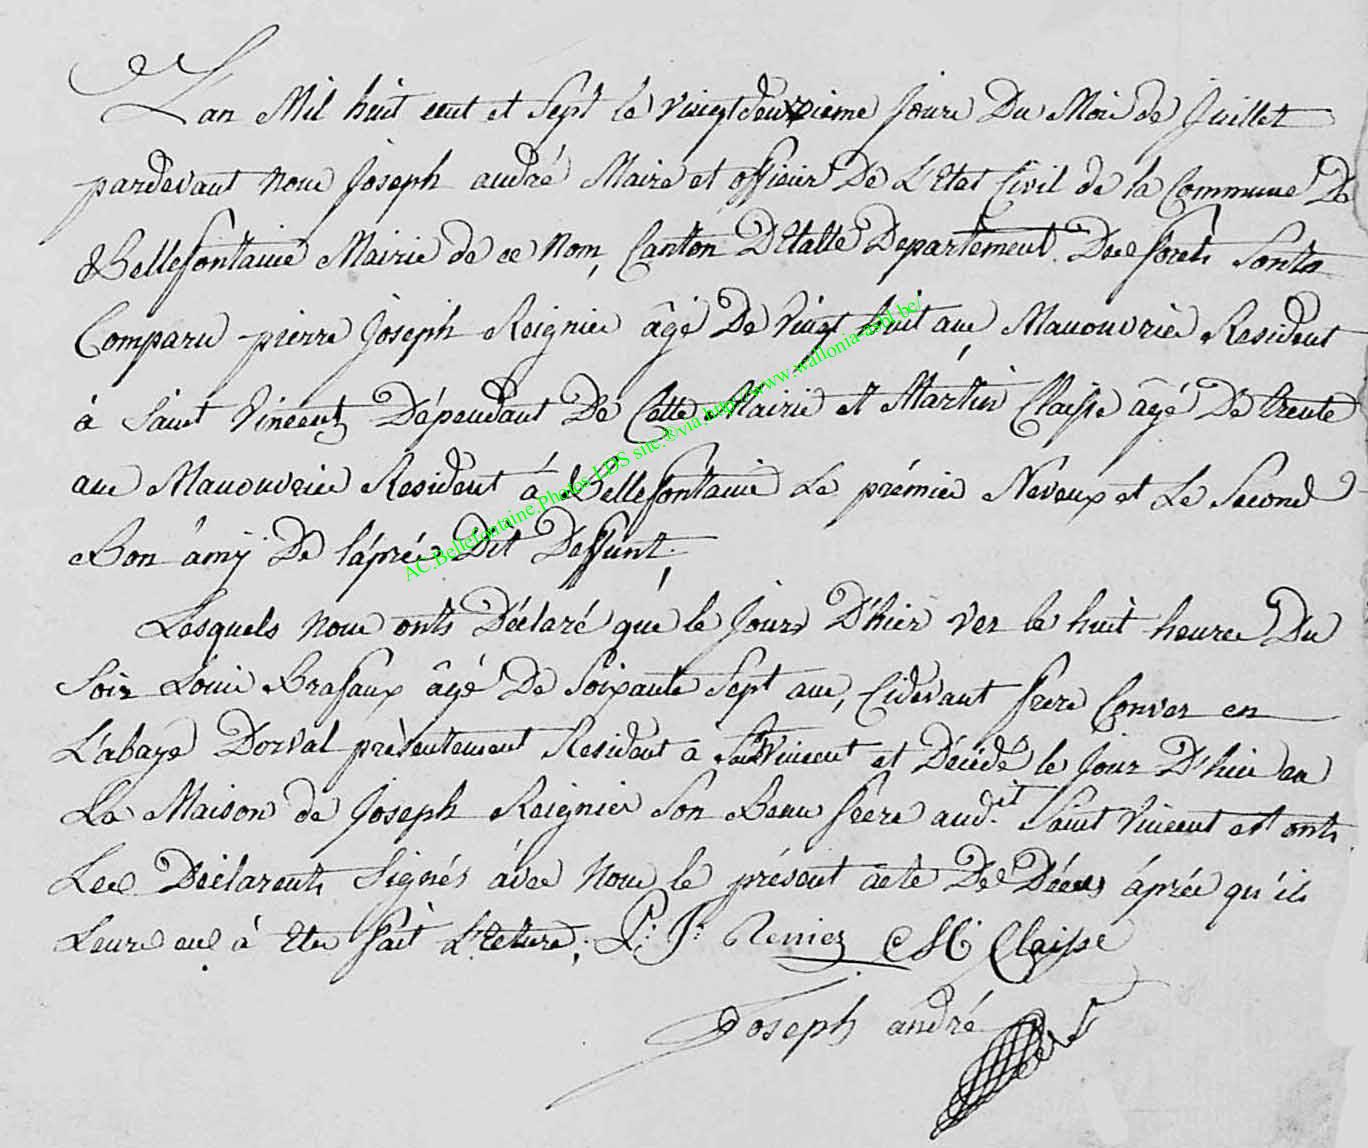 L'an Mil huit cent et Sept le vingtdeuxzieme Jour Du Mois de Juillet
pardevant nous Joseph andré Maire et officier De L'Etat Civil de la Commune De
Bellefontaine Mairie de ce Nom, Canton D'Etalle Departement Des forets Sonts
Comparu pierre Joseph Reignier âgé De Vingt huit ans Manouvrier Resident
à Saint Vincent Dépendant De Cette Mairie et Martin Claisse âgé De trente
ans Manouvrier Resident á Bellefontaine Le prémier Neveux et Le Second
Bon âmÿ De l'áprés Dit Deffunt.
Lesquels nous onts Déclaré que le Jour D'hier ver le huit heures Du
Soir Louis Brasaux âgé De Soixante Sept ans, Cidevant frere Convers en
L'abaye Dorval présentement Resident a St Vincent et Décédé le Jour D'hier en
La Maison de Joseph Reignier Son Beau frere aud.it Saint Vincent et onts
Les Déclarents Signés ávec Nous le présent acte De Décés áprés qu'ils
Leurs eus à Ete fait Lecture. P: J: Reniez M Claisse
Joseph andré
AC.Bellefontaine.Photos LDS site.®via.http://www.wallonia-asbl.be/